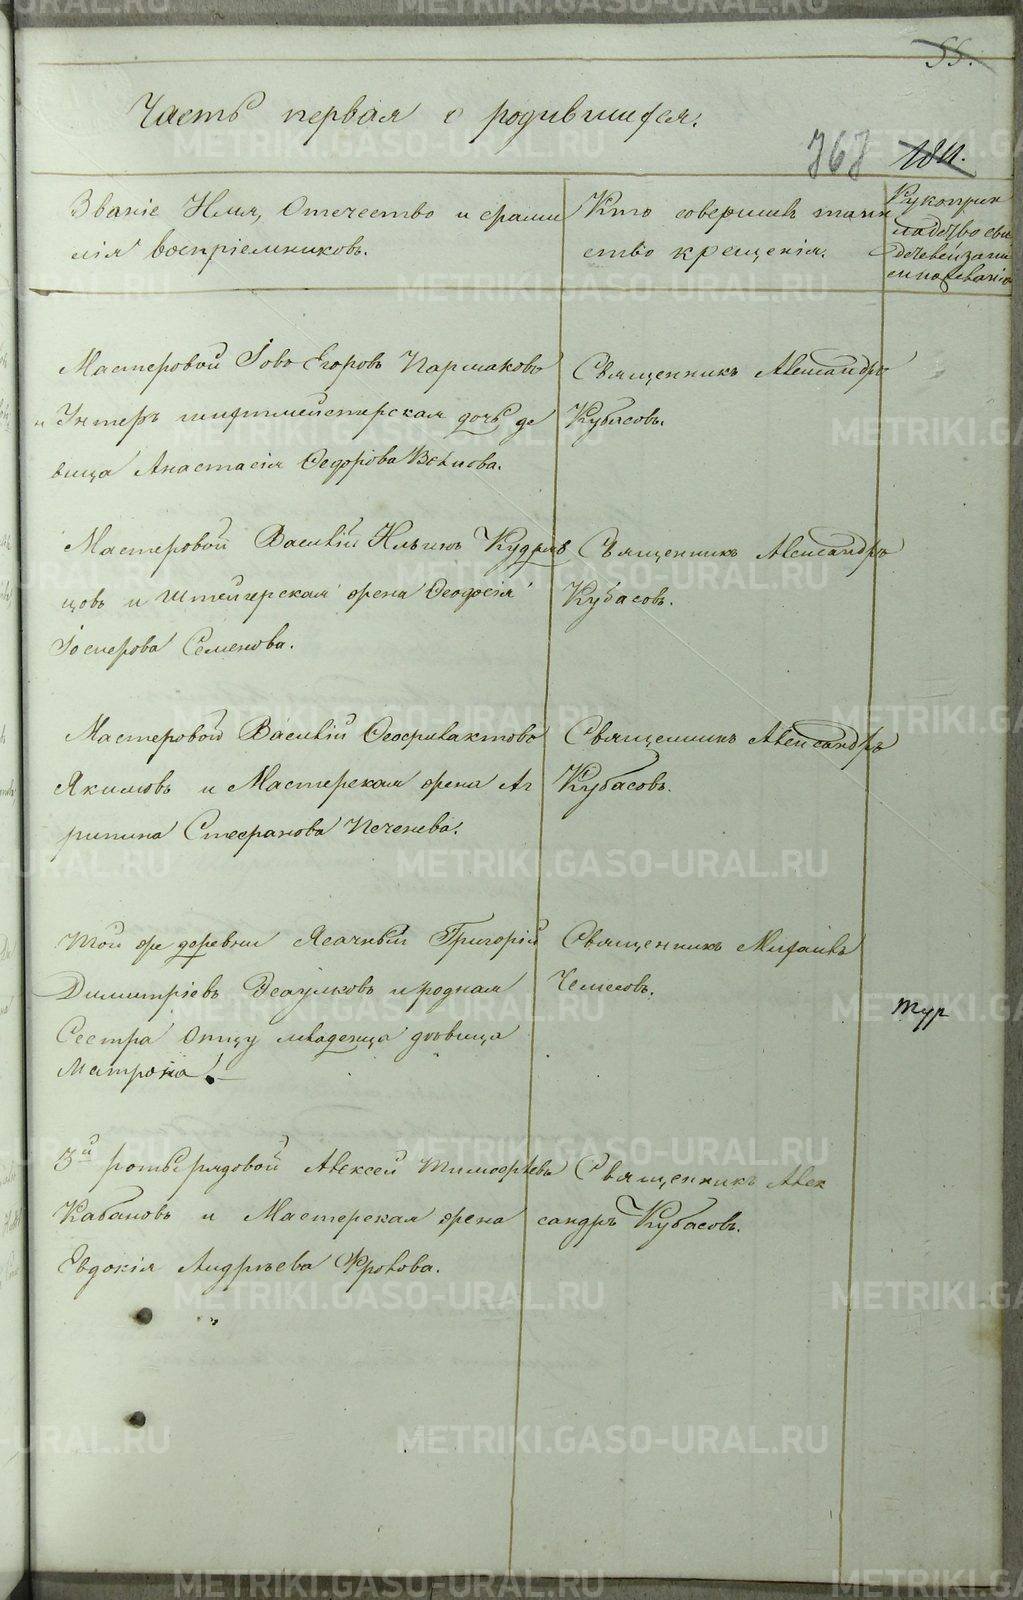 55.
Часть первая о родившихся.
767 181.
Званіе Имя, Отечество и фами
лія воспріемниковъ.
Кто совершилъ таин
ство крещенія.
Рукоприк
ладство сви
дѣтелей записи
по желанію
Мастеровой Іовъ Егоровъ Пармаковъ
и Унтеръ шихтмейстерская дочь дѣ
вица Анастасія Ѳедорова
Священникъ Александръ
Кубасовъ.
Мастеровой Василій Ильинъ Кудряв
цовъ и Штейгерская жена Ѳеодосія
Іосифова Семенова.
Священникъ Александръ
Кубасовъ.
Мастеровой Василій Ѳеофилактовъ
Якимовъ и Мастерская жена Аг
рипина Стефанова Печенева.
Священникъ Александръ
Кубасовъ.
Той же деревни Ясачный Григорій
Димитріевъ Есаулковъ и родная
Сестра отцу младенца дѣвица
Матрона.
Священникъ Михаилъ
Чемесовъ.
тур
3й роты рядовой Алексей Тимофѣевъ
Кабановъ и Мастерская жена
Евдокія Андрѣева Фролова.
Священникъ Алек
сандръ Кубасовъ.
METRIKI.GASO-URAL.RU